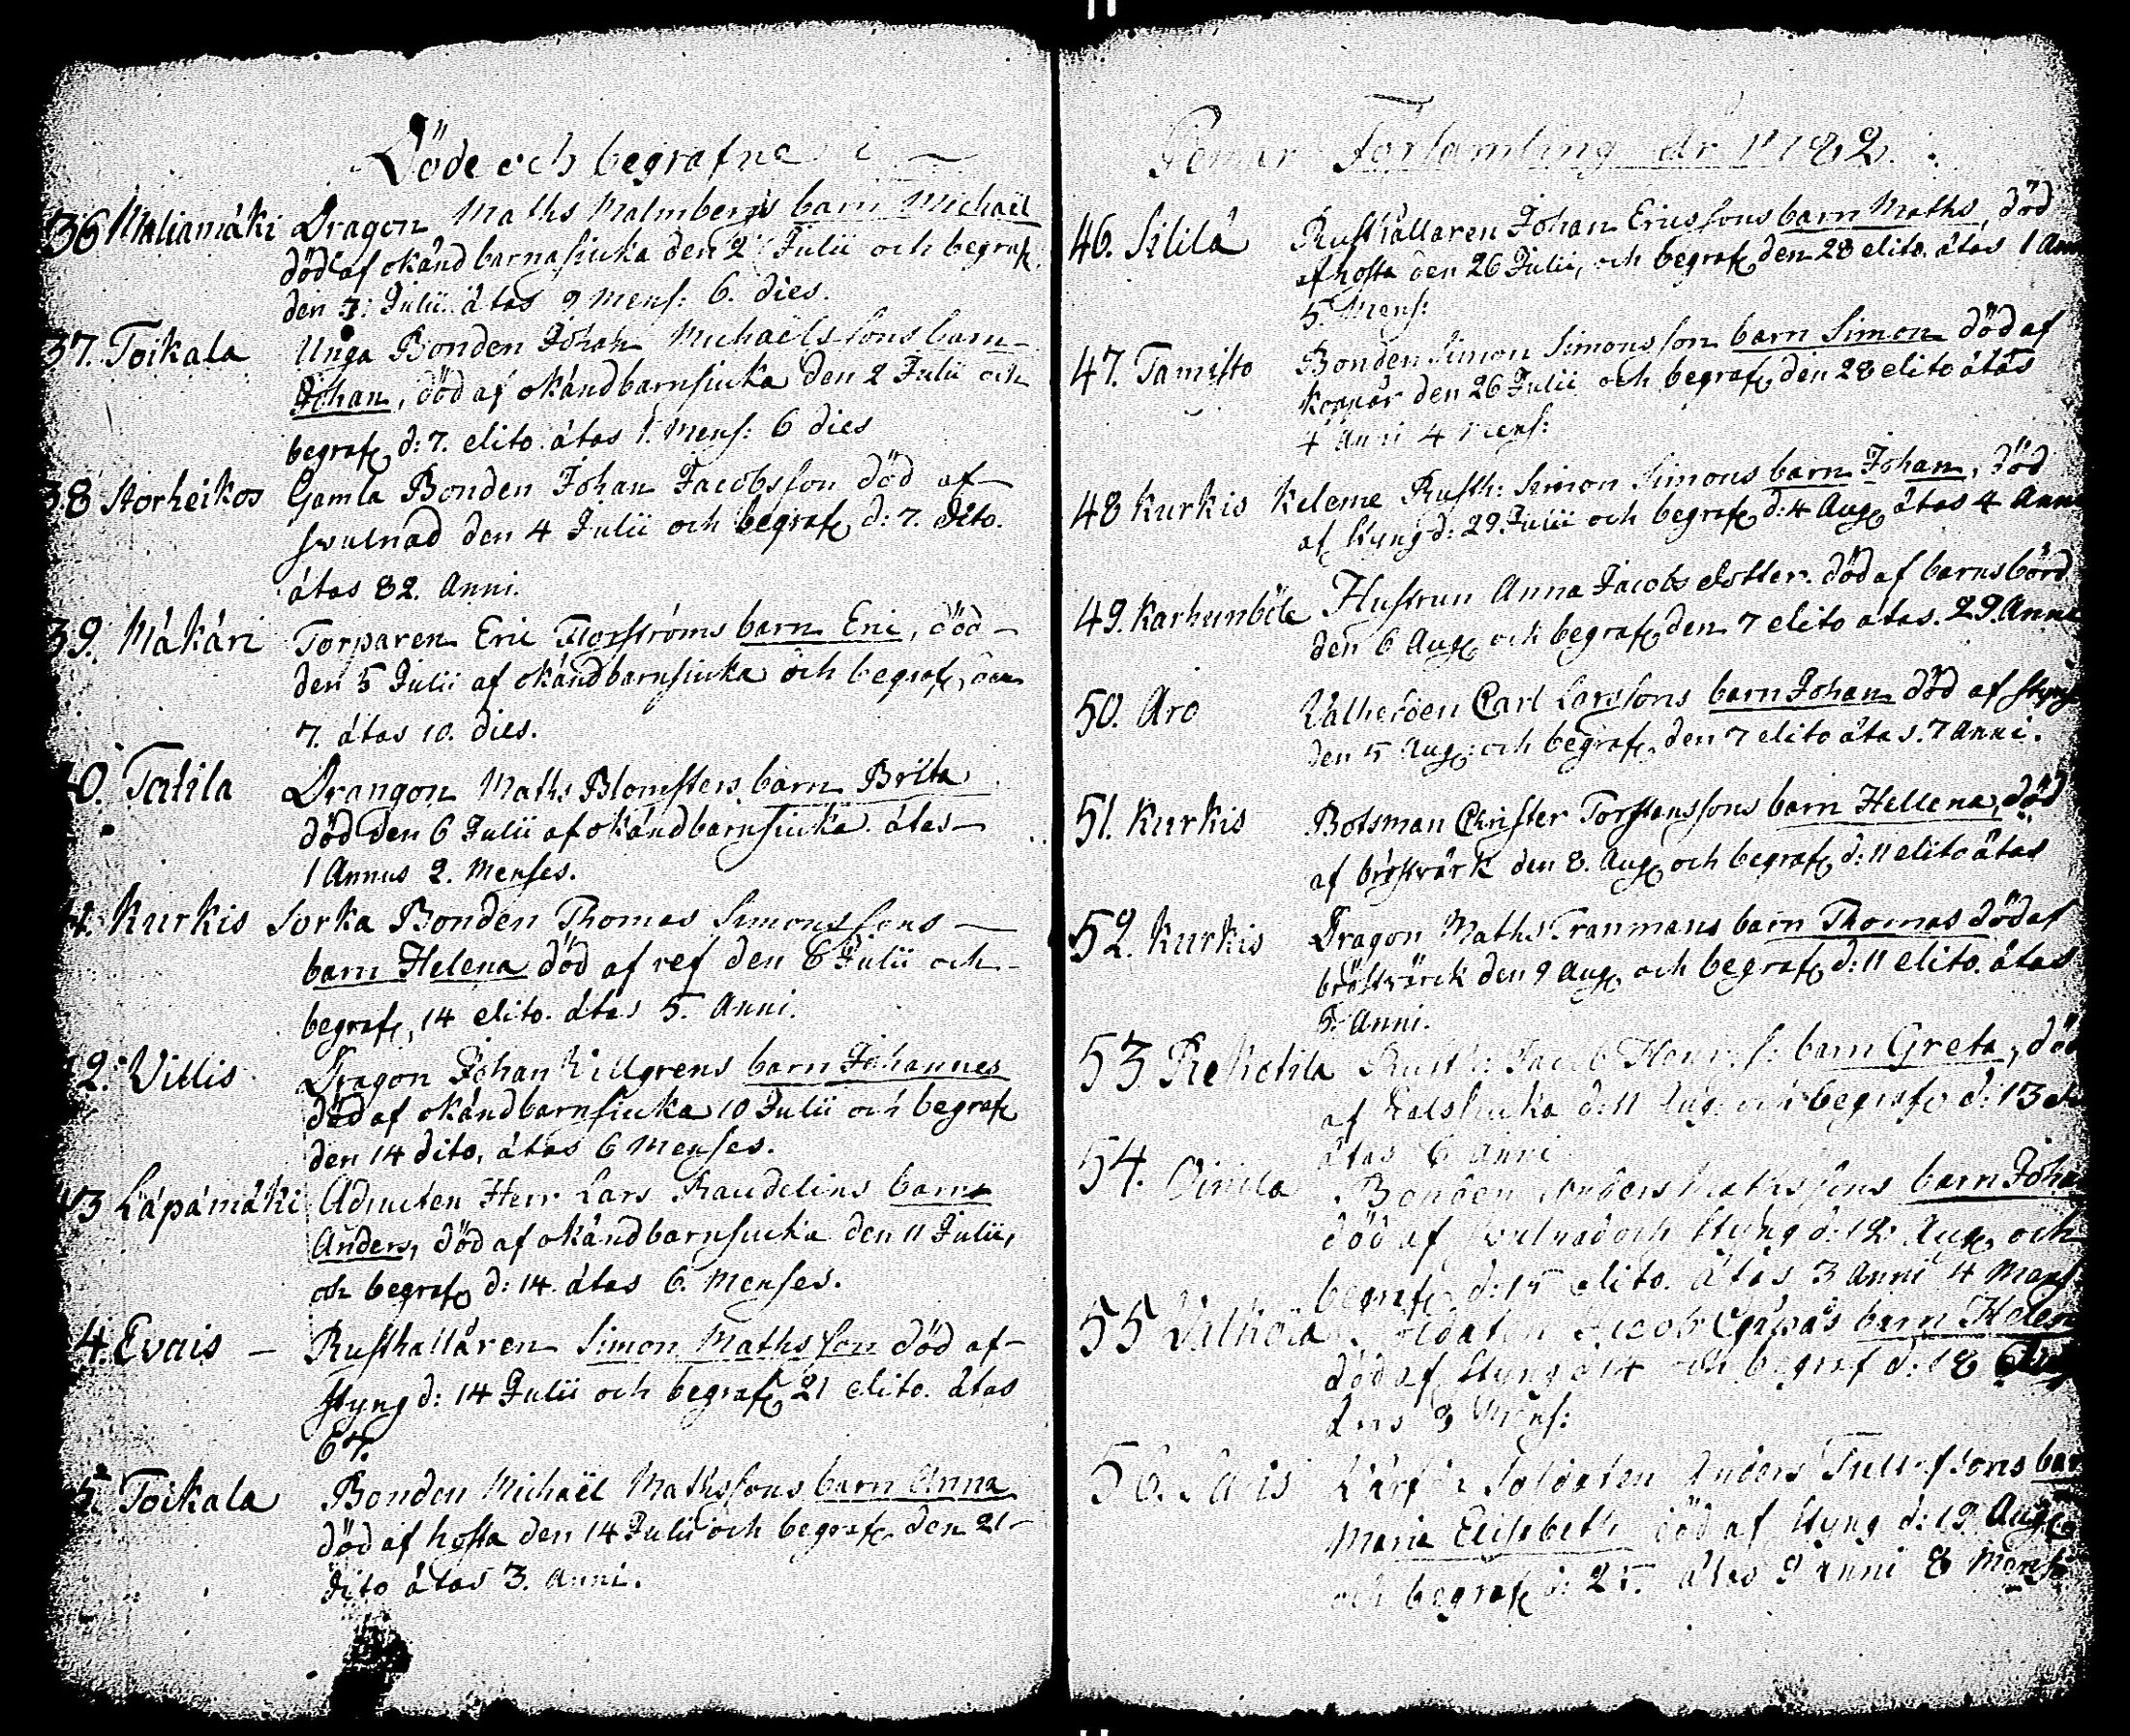 Döde och begrafne i
36 Maliamäki Dragon Maths Malmbergs barn Michaël
död af okänd barnasiuka den 2 Julii och begraf.
den 3: Julii ätas 9 Mens: 6. dies.
37. Toikala Unga Bonden Johan Michaëls sons barn
Johan, död af okänd barnsiuka den 2 Julii och
begraf, d: 7. dito. ätas 1. Mens: 6 dies
38 Storheikos Gamla Bonden Johan Jacobsson död af
svulnad den 4 Julii och begraf d: 7. dito.
ätas 82. Anni.
39. Mäkäri Torparen Eric Florströms barn Eric, död
den 5 Julii af okänd barnsiuka och begraf, den
7. ätas 10. dies.
0. Tatila Drangon Maths Blomsters barn Brita
död den 6 Julii af okänd barnsiuka ätas
1 Annus 2. Menses.
Kurkis Sorka Bonden Thomas Simons sons
barn Helena död af ref den 6 Julii och
begraf, 14 dito. ätas 5. Anni.
2. Villis Dragon Johan Killgrens barn Johannes
död af okänd barnsiuka 10 Julii och begraf
den 14 dito, ätas 6 Menses.
3 Läpämäki Adjucten Herr Lars Raudelins barn
Anders, död af okänd barnsiuka den 11 Julii,
och begraf d: 14. ätas 6. Menses.
4. Evais Rusthallären Simon Maths son död af
styng d: 14 Julii och begraf 21 dito. ätas
64.
5. Toikala Bonden Michaël Mathssons barn Anna
död af hosta den 14 Julii och begraf den 21
dito ätas 3. Anni.
Pemar Forsamling år 1782.
46. Sililä Rusthållaren Johan Ericssons barn Maths, död
af hosta den 26 Julii, och begraf den 28 dito. ätas 1 Ann
5. Mens:
47. Tamisto Bonden Simon Simonsson barn Simon död af
koppår den 26 Julii och begraf, den 28 dito ätas
4 Anni 4 Mens:
48 Kurkis Keleme Rusth: Simon Simons barn Johan, död
af styng d: 29. Julii och begraf, d: 4 Aug, ätas 4 Anni
49. Karhunböle Hustrun Anna Jacobs dotter. död af barnsbörd
den 6 Aug och begraf, den 7 dito ätas. 29. Anni
50. Aro Carl Larssons barn Johan död af styng
den 5 Aug. och begraf, den 7 dito ätas. 7 Anni.
51. Kurkis Botsman Christer Torstenssons barn Hellena, död
af bröstvärk den 8. Aug och begraf, d: 11 dito ätas
52. Kurkis Dragon Maths Tranmans barn Thomas död af
bröstvärck den 9 Aug, och begraf d: 11 dito. ätas
5. Anni.
53 Rekotila Rusth: Jacob Henr. s: barn Greta, död
af Halssiuka d: 11 Aug. och begraf, d: 13
ätas 6 Anni
54. Oinila Bonden Anders Mathssons barn Joha
död af svulnad och styng d: 12 Aug, och
begraf d: 15 dito. ätas 3 Anni 4 Mens
55 Soldaten Jacob barn Helen
död af styng d 14 och begraf d: 18
9 Mens:
56. Soldaten Anders bar
Maria Elisabeth död af styng d: 19 Aug
och begraf d: 25. ätas 9 Anni 8 Mens